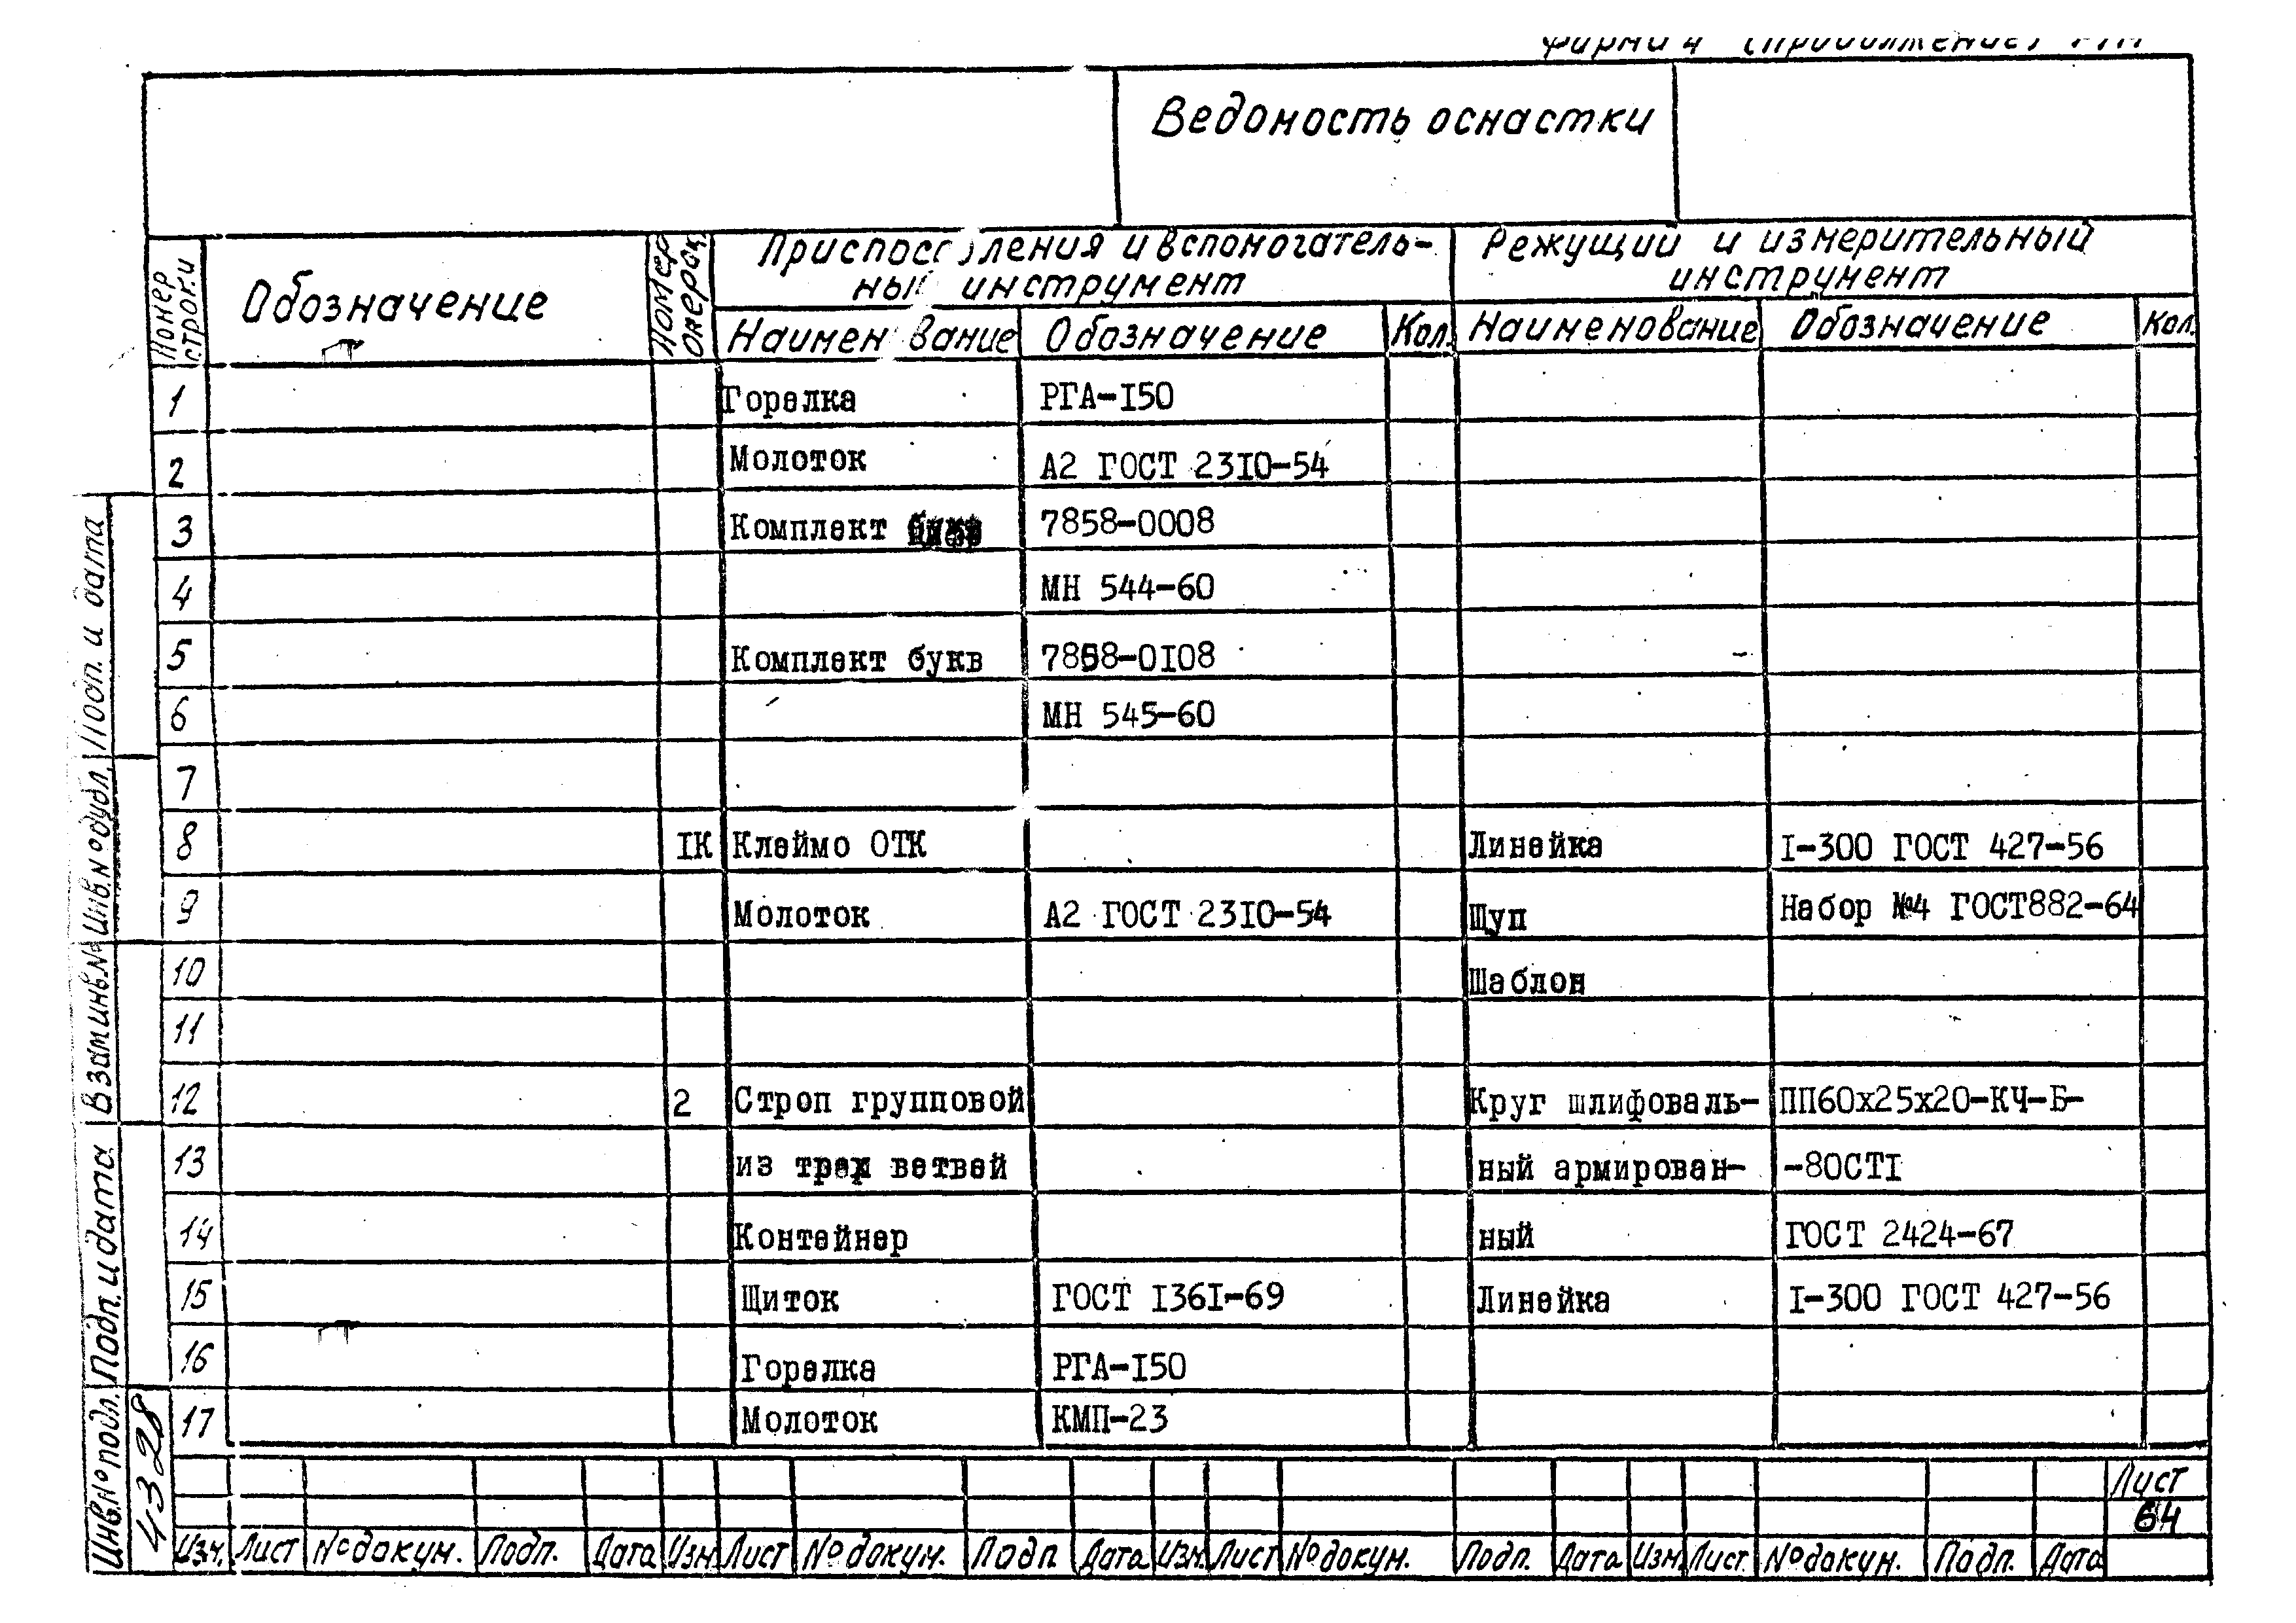 Ведомость оснастки
Номер строки
Обозначение
Номер операц.
ления и вспомогатель-
инструмент
Режущий и измерительный
инструмент
Обозначение Кол. Наименование Обозначение Кол.
1 Горелка РГА-I50
2 Молоток А2 ГОСТ 23I0-54
3 Комплект 7858-0008
4 МН 544-60
5 Комплект букв 7858-0I08
6 МН 545-60
7
8 IК Клеймо ОТК Линейка I-300 ГОСТ 427-56
9 Молоток А2 ГОСТ 23I0-54 Щуп Набор №4 ГОСТ882-64
10 Шаблон
11
12 2 Строп групповой Круг шлифоваль- ПП60х25х20-КЧ-Б-
13 из трех ветвей ный армирован- -80СТI
14 Контейнер ный ГОСТ 2424-67
15 Щиток ГОСТ I36I-69 Линейка I-300 ГОСТ 427-56
16 Горелка РГА-I50
17 Молоток КМП-23
Подп. и дата
Инв.№ дубл.
Взам.инв.№
Подп. и дата
Инв.№ подл.
4328
Лист
64
Изм. Лист № докум. Подп. Дата Изм. Лист № докум. Подп Дата Изм. Лист № докум. Подп. Дата Изм. Лист № докум. Подп. Дата